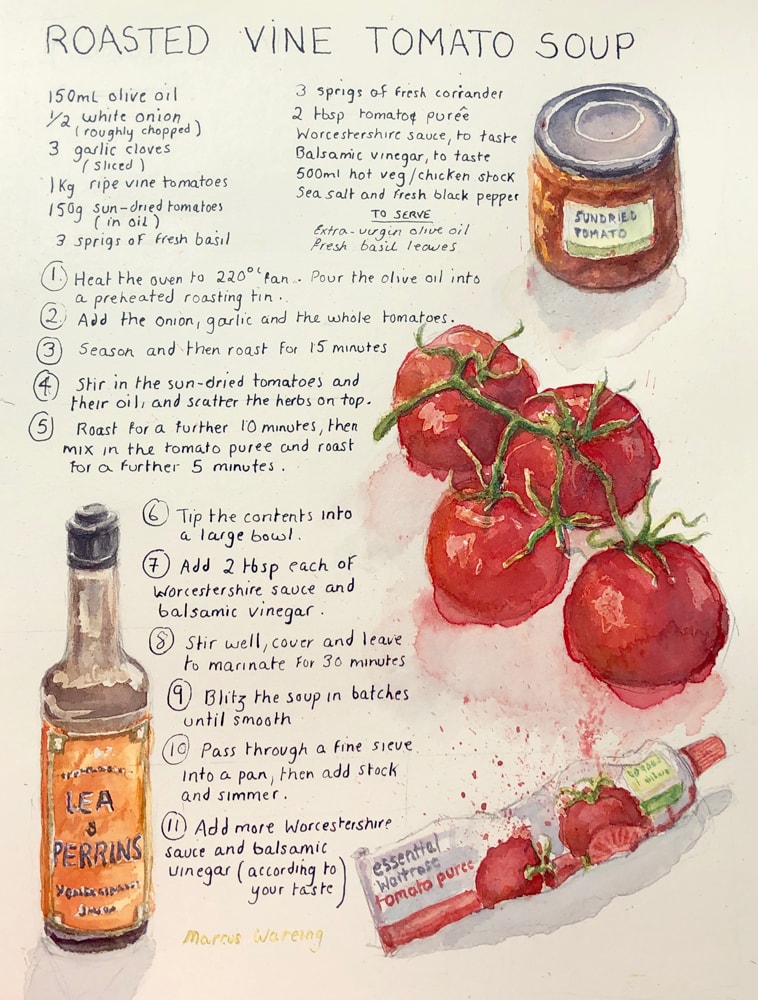 ROASTED VINE TOMATO SOUP
150mL olive oil
1/2 white onion
(roughly chopped)
3 garlic cloves
(sliced)
1Kg ripe vine tomatoes
150g sun-dried tomatoes
(in oil)
3 sprigs of fresh basil
3 sprigs of fresh coriander
2 tbsp tomato purée
Worcestershire sauce, to taste
Balsamic vinegar, to taste
500ml hot veg/chicken stock
Sea salt and fresh black pepper
TO SERVE
Extra-virgin olive oil
Fresh basil leaves
SUNDRIED
TOMATO
1. Heat the oven to 220°C fan. Pour the olive oil into
a preheated roasting tin.
2. Add the onion, garlic and the whole tomatoes.
3 Season and then roast for 15 minutes
4 Stir in the sun-dried tomatoes and
their oil, and scatter the herbs on top.
5 Roast for a further 10 minutes, then
mix in the tomato puree and roast
for a further 5 minutes.
6 Tip the contents into
a large bowl.
7 Add 2 tbsp each of
Worcestershire sauce and
balsamic vinegar.
8 Stir well, cover and leave
to marinate for 30 minutes
9 Blitz the soup in batches
until smooth
10 Pass through a fine sieve
into a pan, then add stock
and simmer.
11 Add more Worcestershire
sauce and balsamic
vinegar (according to
your taste)
Marcus Wareing
LEA
&
PERRINS
essential
Waitrose
tomato puree